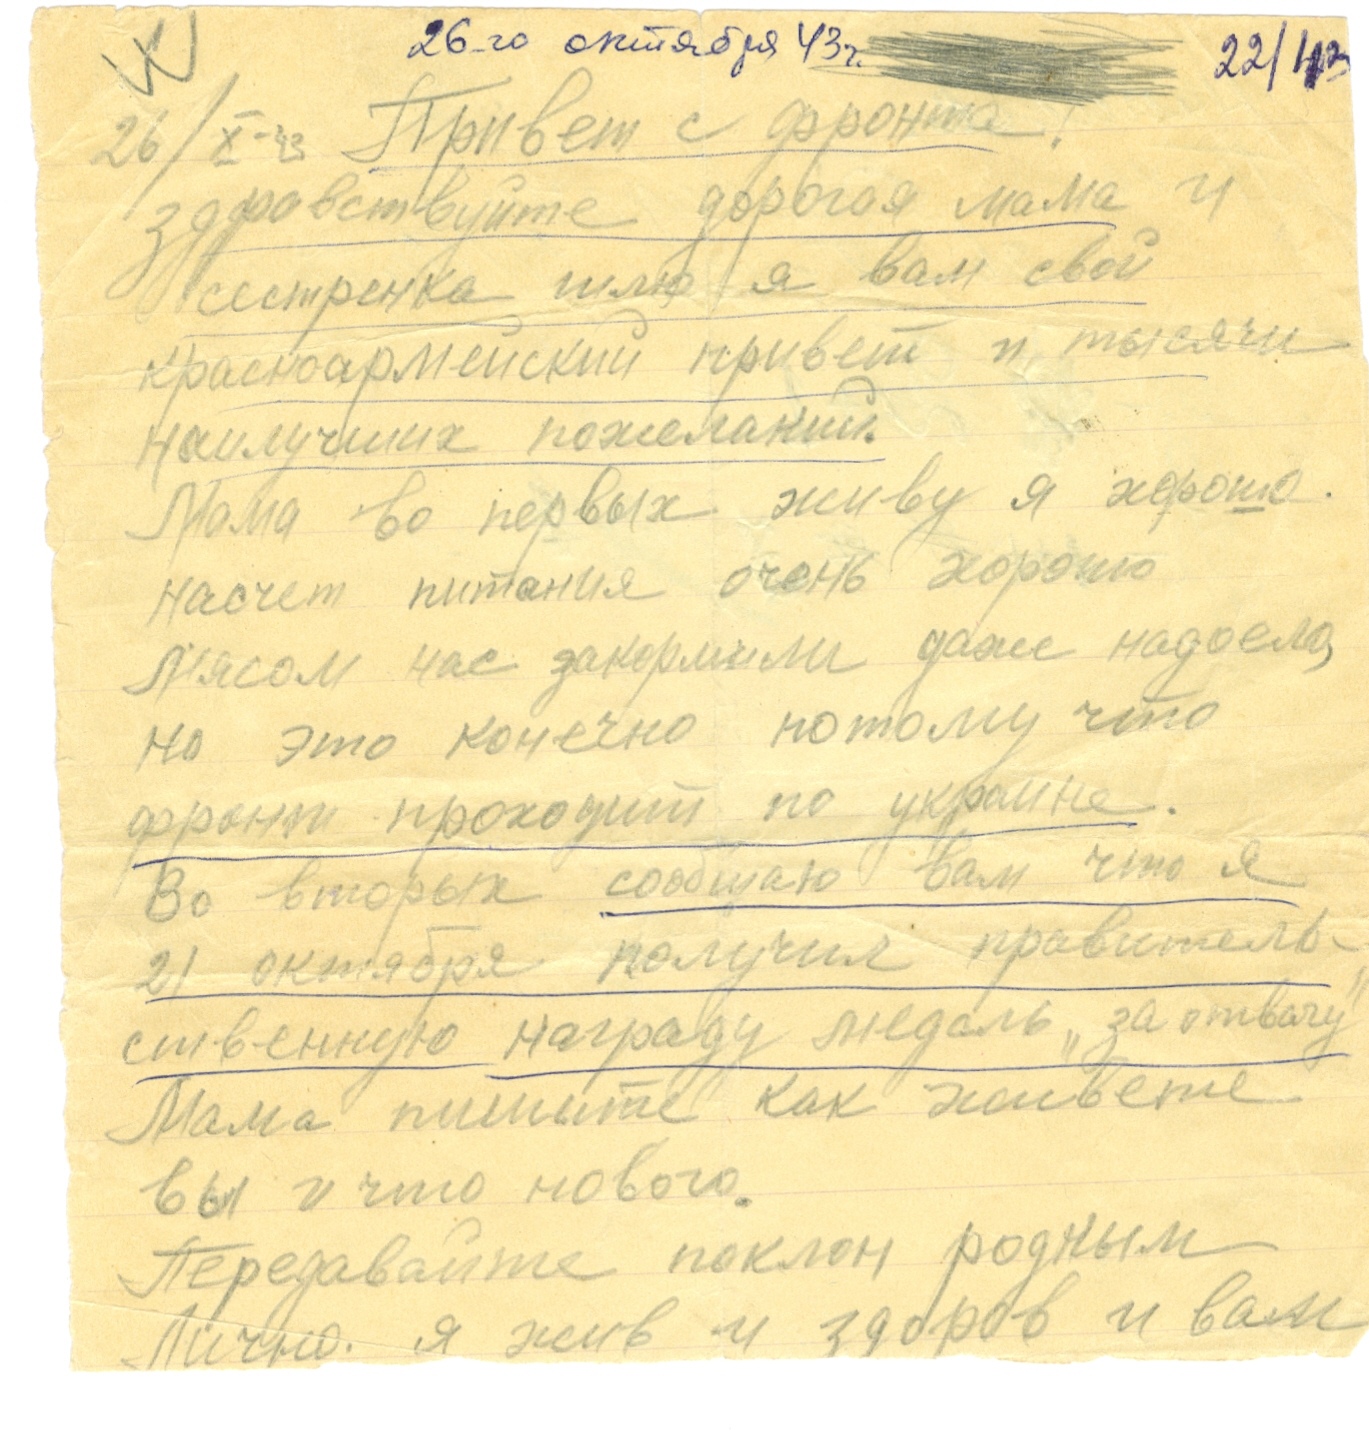 26-го октября 43г. 22/43
26/X-43 Привет с фронта!
здравствуйте дорогая мама и
сестренка шлю я вам свой
красноармейский привет и тысячи
наилучших пожеланий.
Мама во первых живу я хорошо.
насчет питания очень хорошо
Мясом нас закормили даже надоело,
но это конечно потому что
фронт проходит по украине.
Во вторых сообщаю вам что я
21 октября получил правитель-
ственную награду медаль „за отвагу"
Мама пишите как живете
вы и что нового.
Передавайте поклон родным
Лично. я жив и здоров и вам